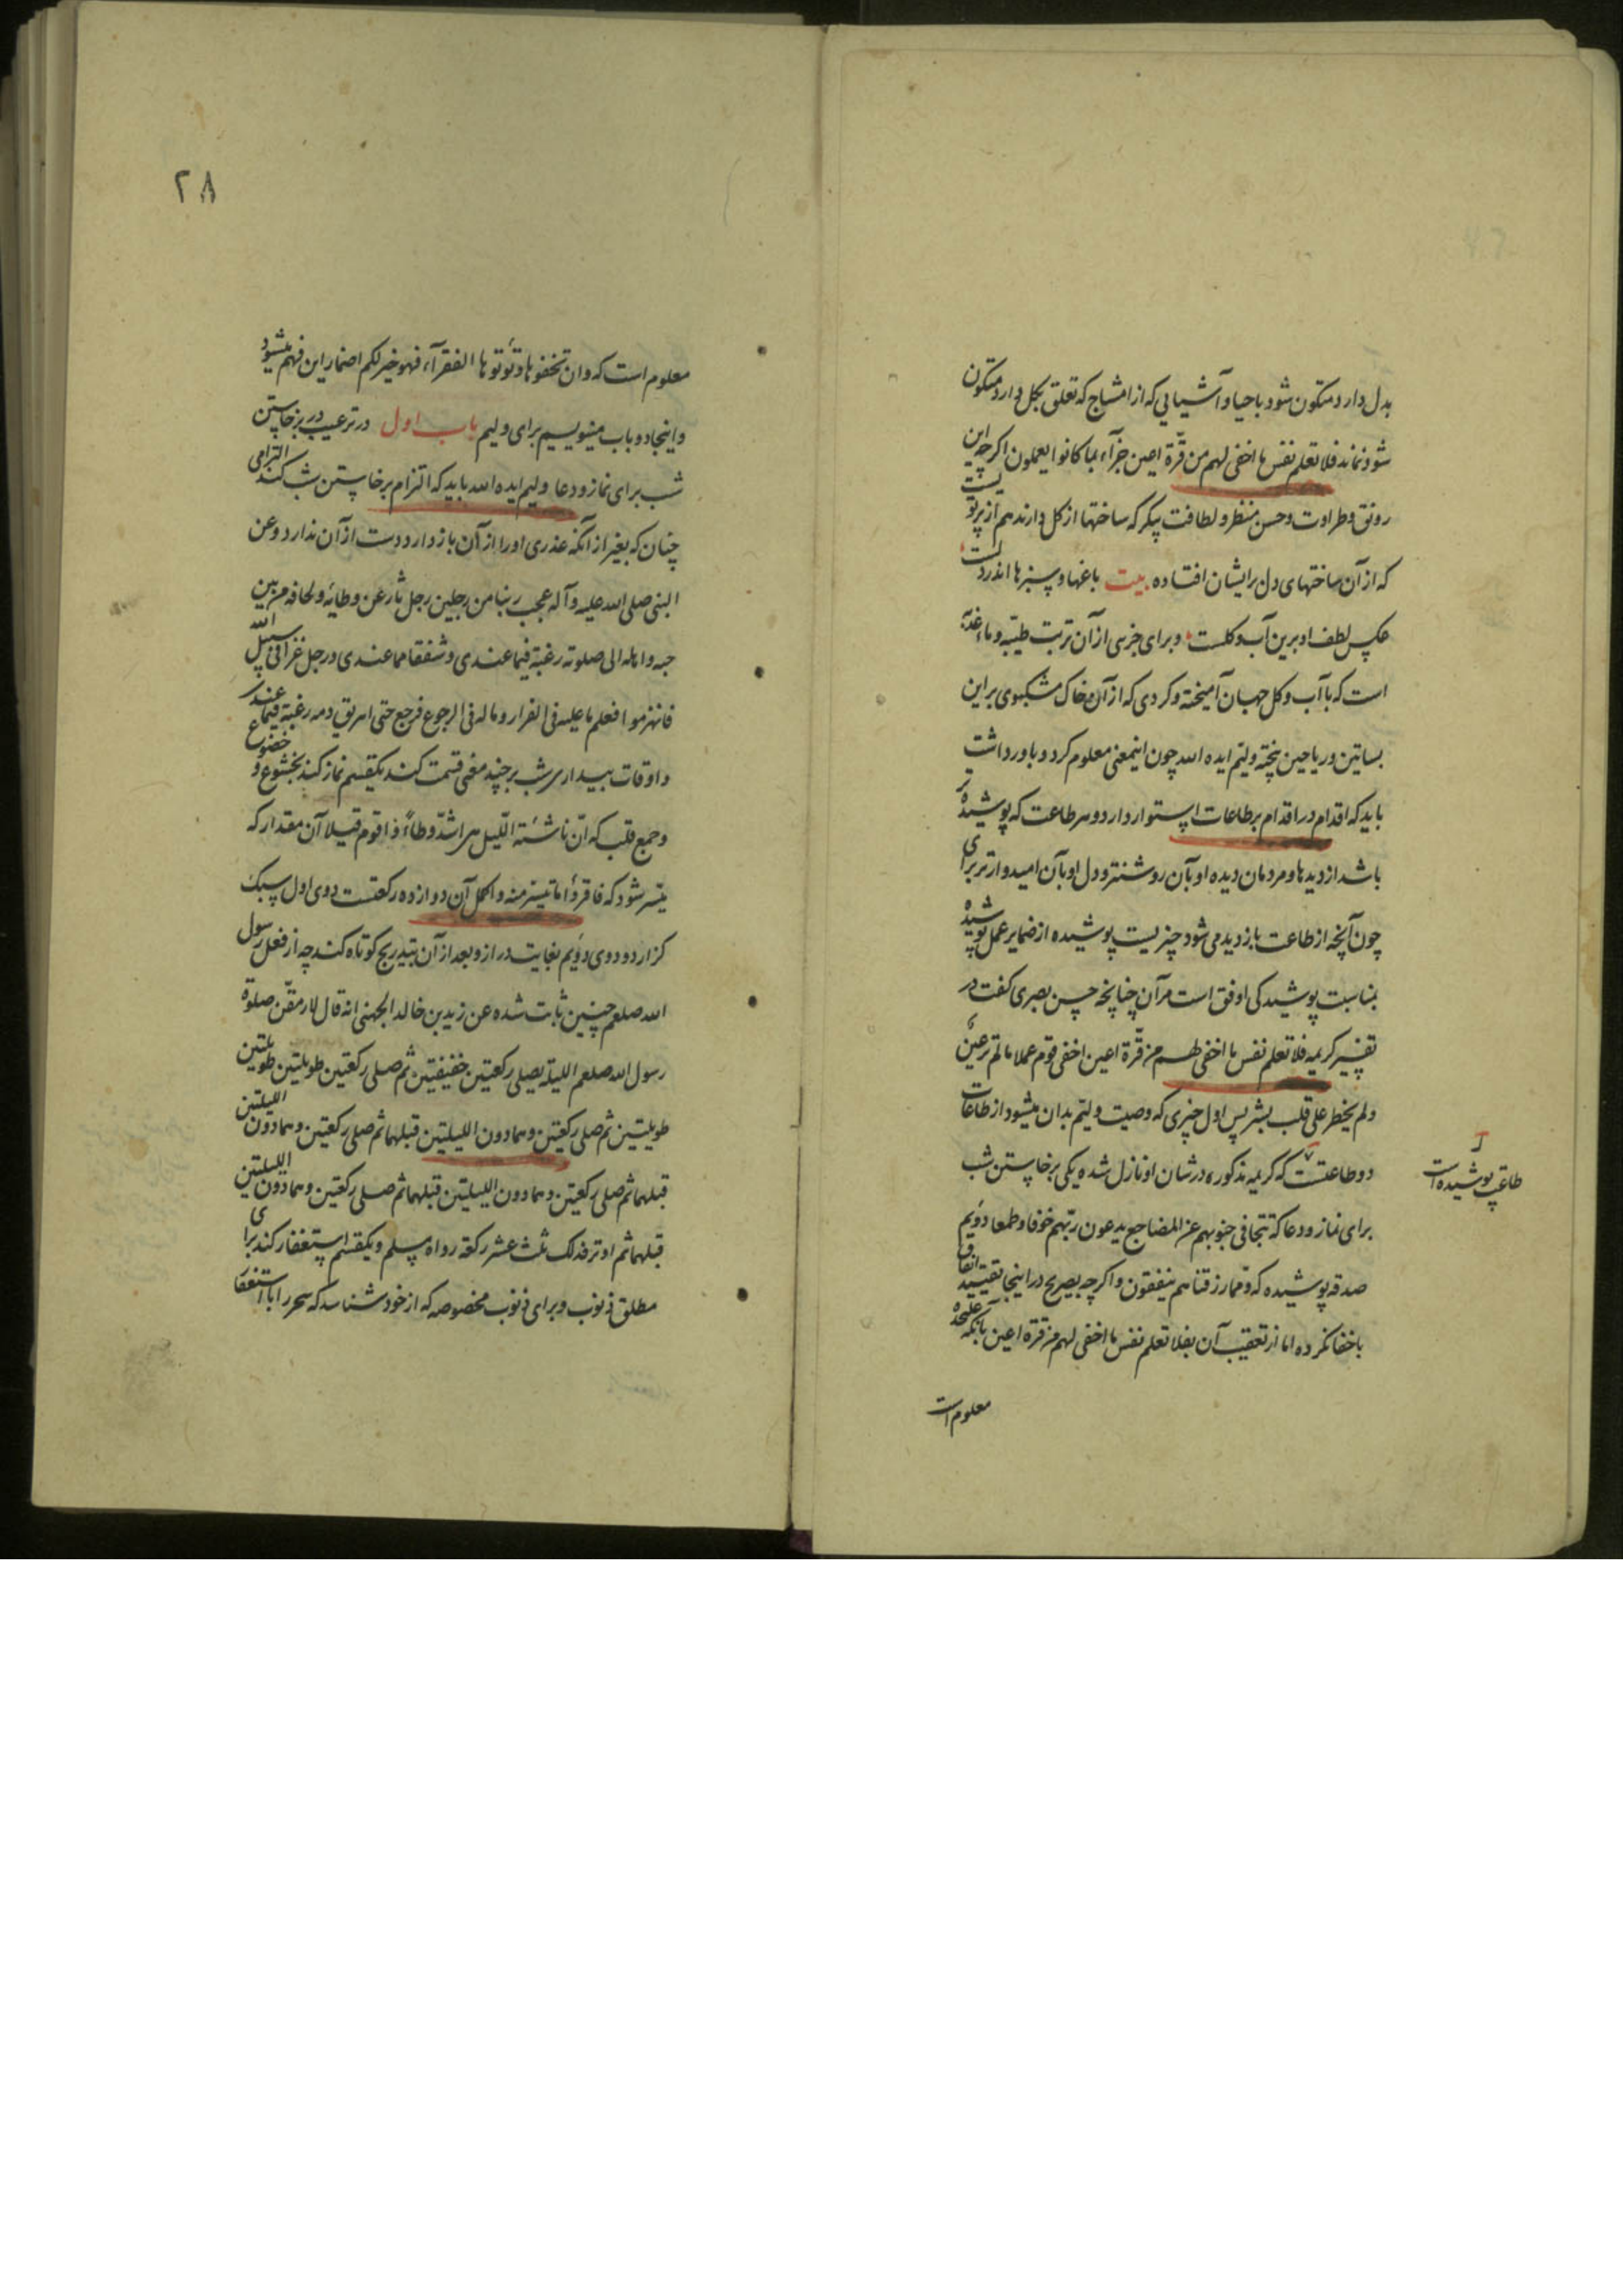 بدل دارد متکون شود با حیا و آشیایی که از امشاج که تعلق بکل دارد متکون
شود نماند فلا تعلم نفس ما اخفی لهم من قرّة اعین جزآء بما کانوا یعملون اکرچه این
رونق و طراوت و حسن منظر و لطافت پیکر که ساختها از کل دارند هم از پرتو یست
که از آن ساختهای دل برایشان افتاده بیت باغها و سبزها اندر دلست
عکس لطف او برین آب و کلست و برای جزی از آن تربت طیّبه و ماء
است که با آب و کل جهان آمیخته و کردی که از آن خاک مشکبوی بر این
بساتین و ریاحین پخته ولیّم ایده الله چون اینمعنی معلوم کرد و باور داشت
باید که اقدام در اقدام بر طاعات استوار دارد و هر طاعت که پوشیده تر
باشد از دیدها و مردمان دیده او بآن روشنتر و دل او بآن امیدوارتر برای
چون آنچه از طاعت بازدید می شود چیزیست پوشیده از ضمایر عمل پوشیده
بمناسبت پوشیدکی اوفق است مر آن چنانچه حسن بصری کفت در
تفسیر کریمه فلا تعلم نفس ما اخفی لهم من قرّة اعین اخفی قوم عملا مالم تر عین
و لم یخطر علی قلب بشر پس اول چیزی که وصیت ولیّم بدان میشود از طاعات
دو طاعتست که کریمه مذکوره در شان او نازل شده یکی برخاستن شب
طاعت پوشیده است
برای نماز و دعا که تتجافی جنوبهم عن المضاجع یدعون ربّهم خوفا و طمعا دوّیم
صدقه پوشیده که و ممّا رزقناهم ینفقون و اکرچه بصریح در اینجا تقیید انفاق
باخفا نکرده اما از تعقیب آن بفلا تعلم نفس ما اخفی لهم من قرّة اعین بآنکه علیحده
معلوم است
٢٨
معلوم است که و ان تخفوها و تؤتوها الفقرآء فهو خیر لکم اضمار این فهم میشود
و اینجا دو باب مینویسیم برای ولیم باب اول در ترغیب در برخاستن
شب برای نماز و دعا ولیم ایده الله باید که التزام برخاستن شب کند التزامی
چنان که بغیر از آنکه عذری او را از آن باز دارد دست از آن ندارد و عن
النبی صلی الله علیه و آله عجب ربنا من رجلین رجل ثار عن وطائه و لحافه من بین
حبه و اهله الی صلوته رغبة فیما عندی و شفقا مما عندی و رجل غزا فی سبیل الله
فانهزموا فعلم ما علیه فی الفرار و ما له فی الرجوع فرجع حتی اهریق دمه رغبة فیما عند
و اوقات بیداری شب بر چند معنی قسمت کند یکقسم نماز کند بخشوع و خضوع
و جمع قلب که انّ ناشئة اللّیل هی اشدّ وطاً و اقوم قیلا آن مقدار که
میّسر شود که فاقرؤا ما تیسّر منه و اکمل آن دوازده رکعتست دوی اول سبک
کزارد و دوی دوّیم بغایت دراز و بعد از آن بتدریج کوتاه کند چه از فعل رسول
الله صلعم چنین ثابت شده عن زید بن خالد الجهنی انه قال لارمقنّ صلوة
رسول الله صلعم اللیلة یصلی رکعتین خفیفتین ثم صلی رکعتین طویلتین طویلتین
طویلتین ثم صلی رکعتین و هما دون اللیلتین قبلهما ثم صلی رکعتین و هما دون اللیلتین
قبلهما ثم صلی رکعتین و هما دون اللیلتین قبلهما ثم صلی رکعتین و هما دون اللیلتین
قبلهما ثم اوتر فذلک ثلث عشر رکعة رواه مسلم و یکقسم استغفار کند برای
مطلق ذنوب و برای ذنوب مخصوصه که از خود شناسد که سحر را با استغفا